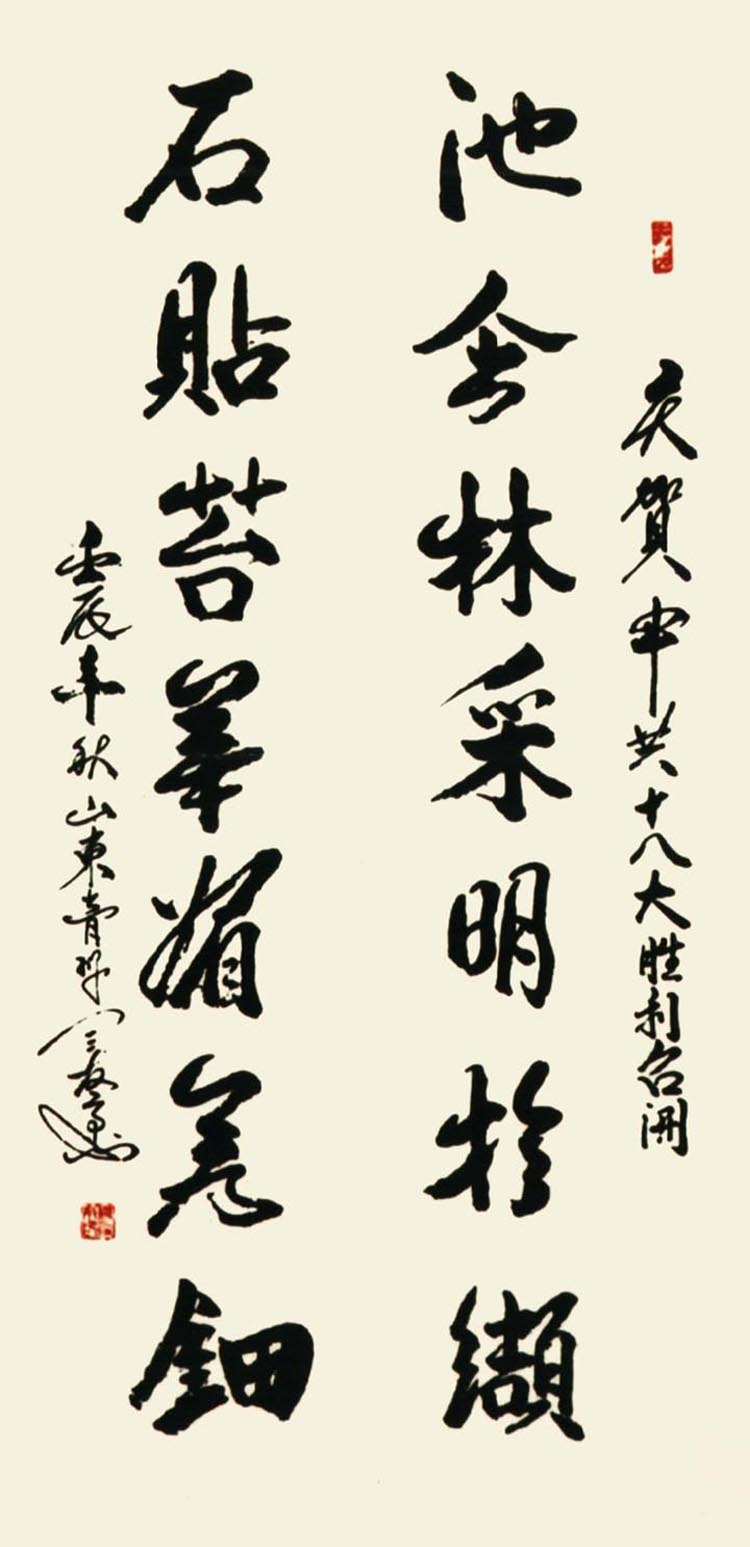 庆賀中共十八大胜利召開
池含林采明於纈
石貼苔華媚若鈿
壬辰年秋山東青州